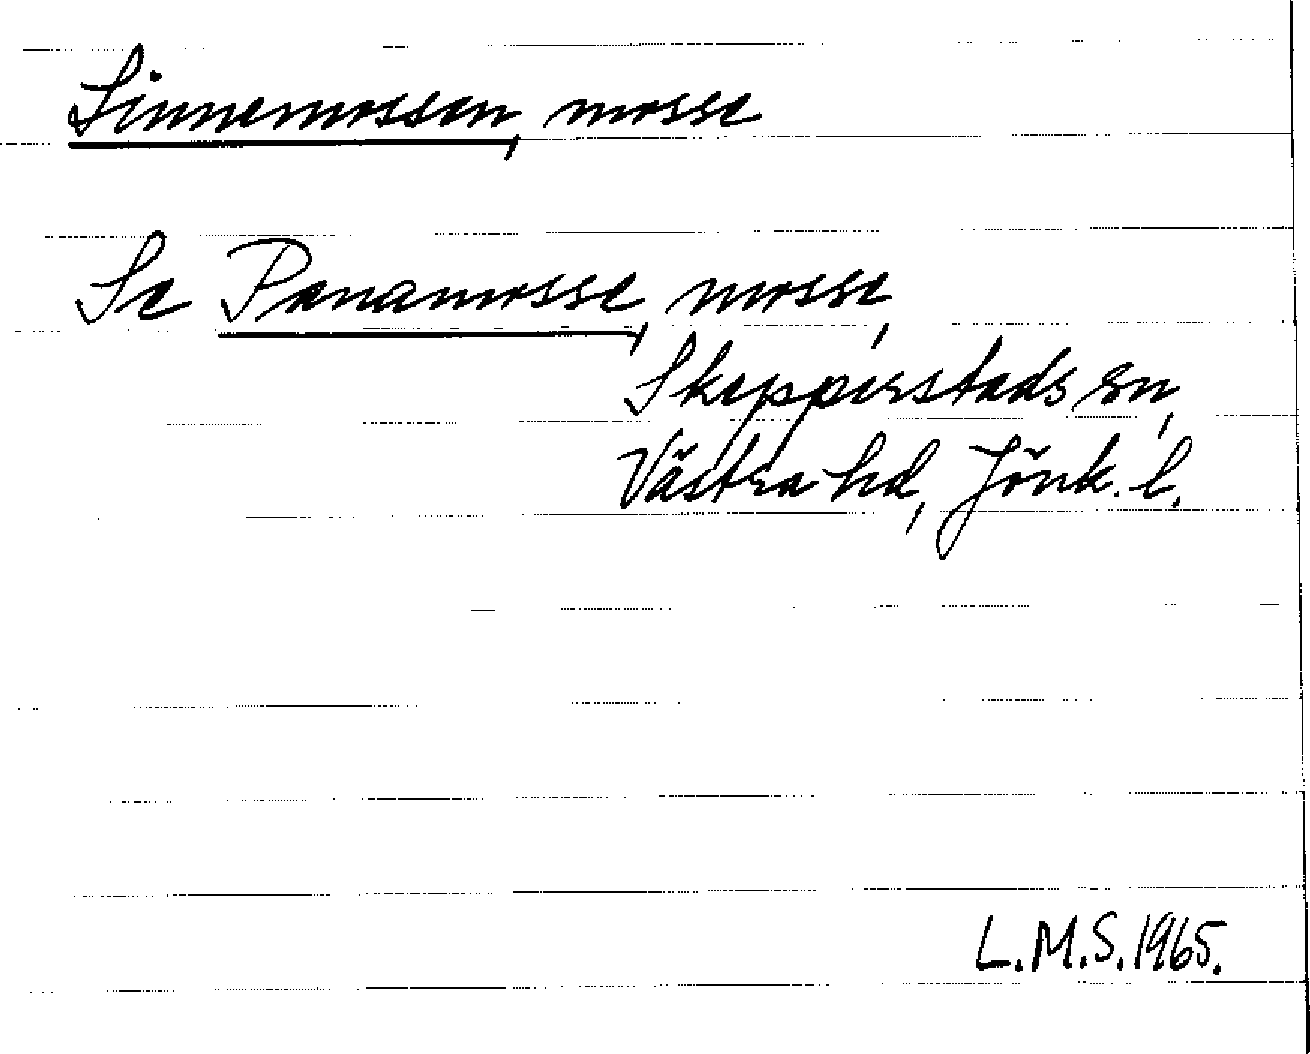 Linnemossen, mosse
Se Panamosse, mosse,
Skepperstads sn,
Västra hd, Jönk. l.
L.M.S. 1965.